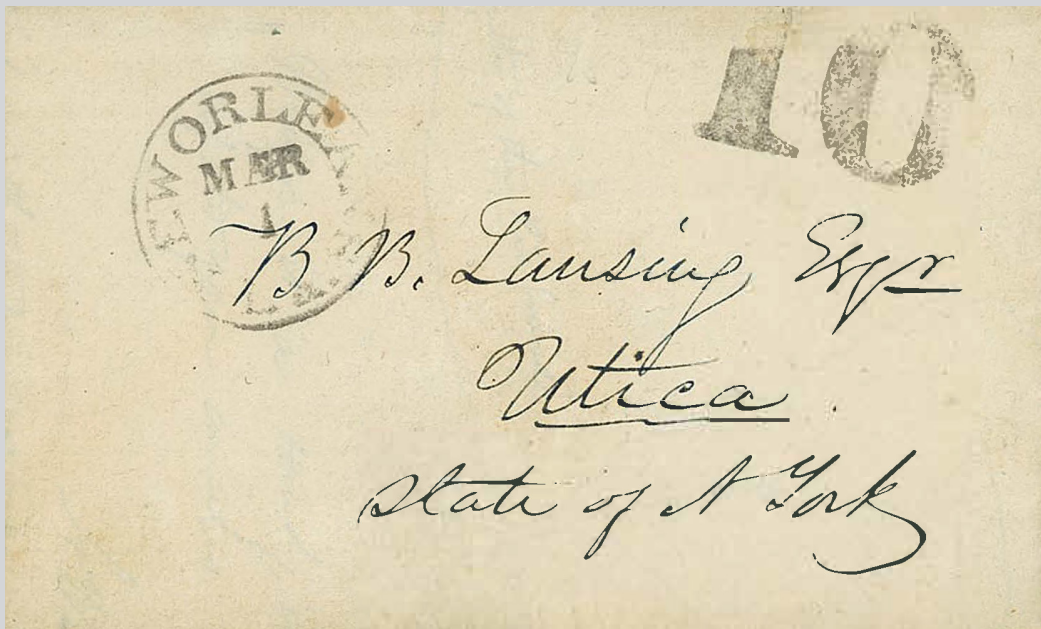 10
EWORLEA
MAR
1
B B. Lansing Esqr
Utica
state of N York